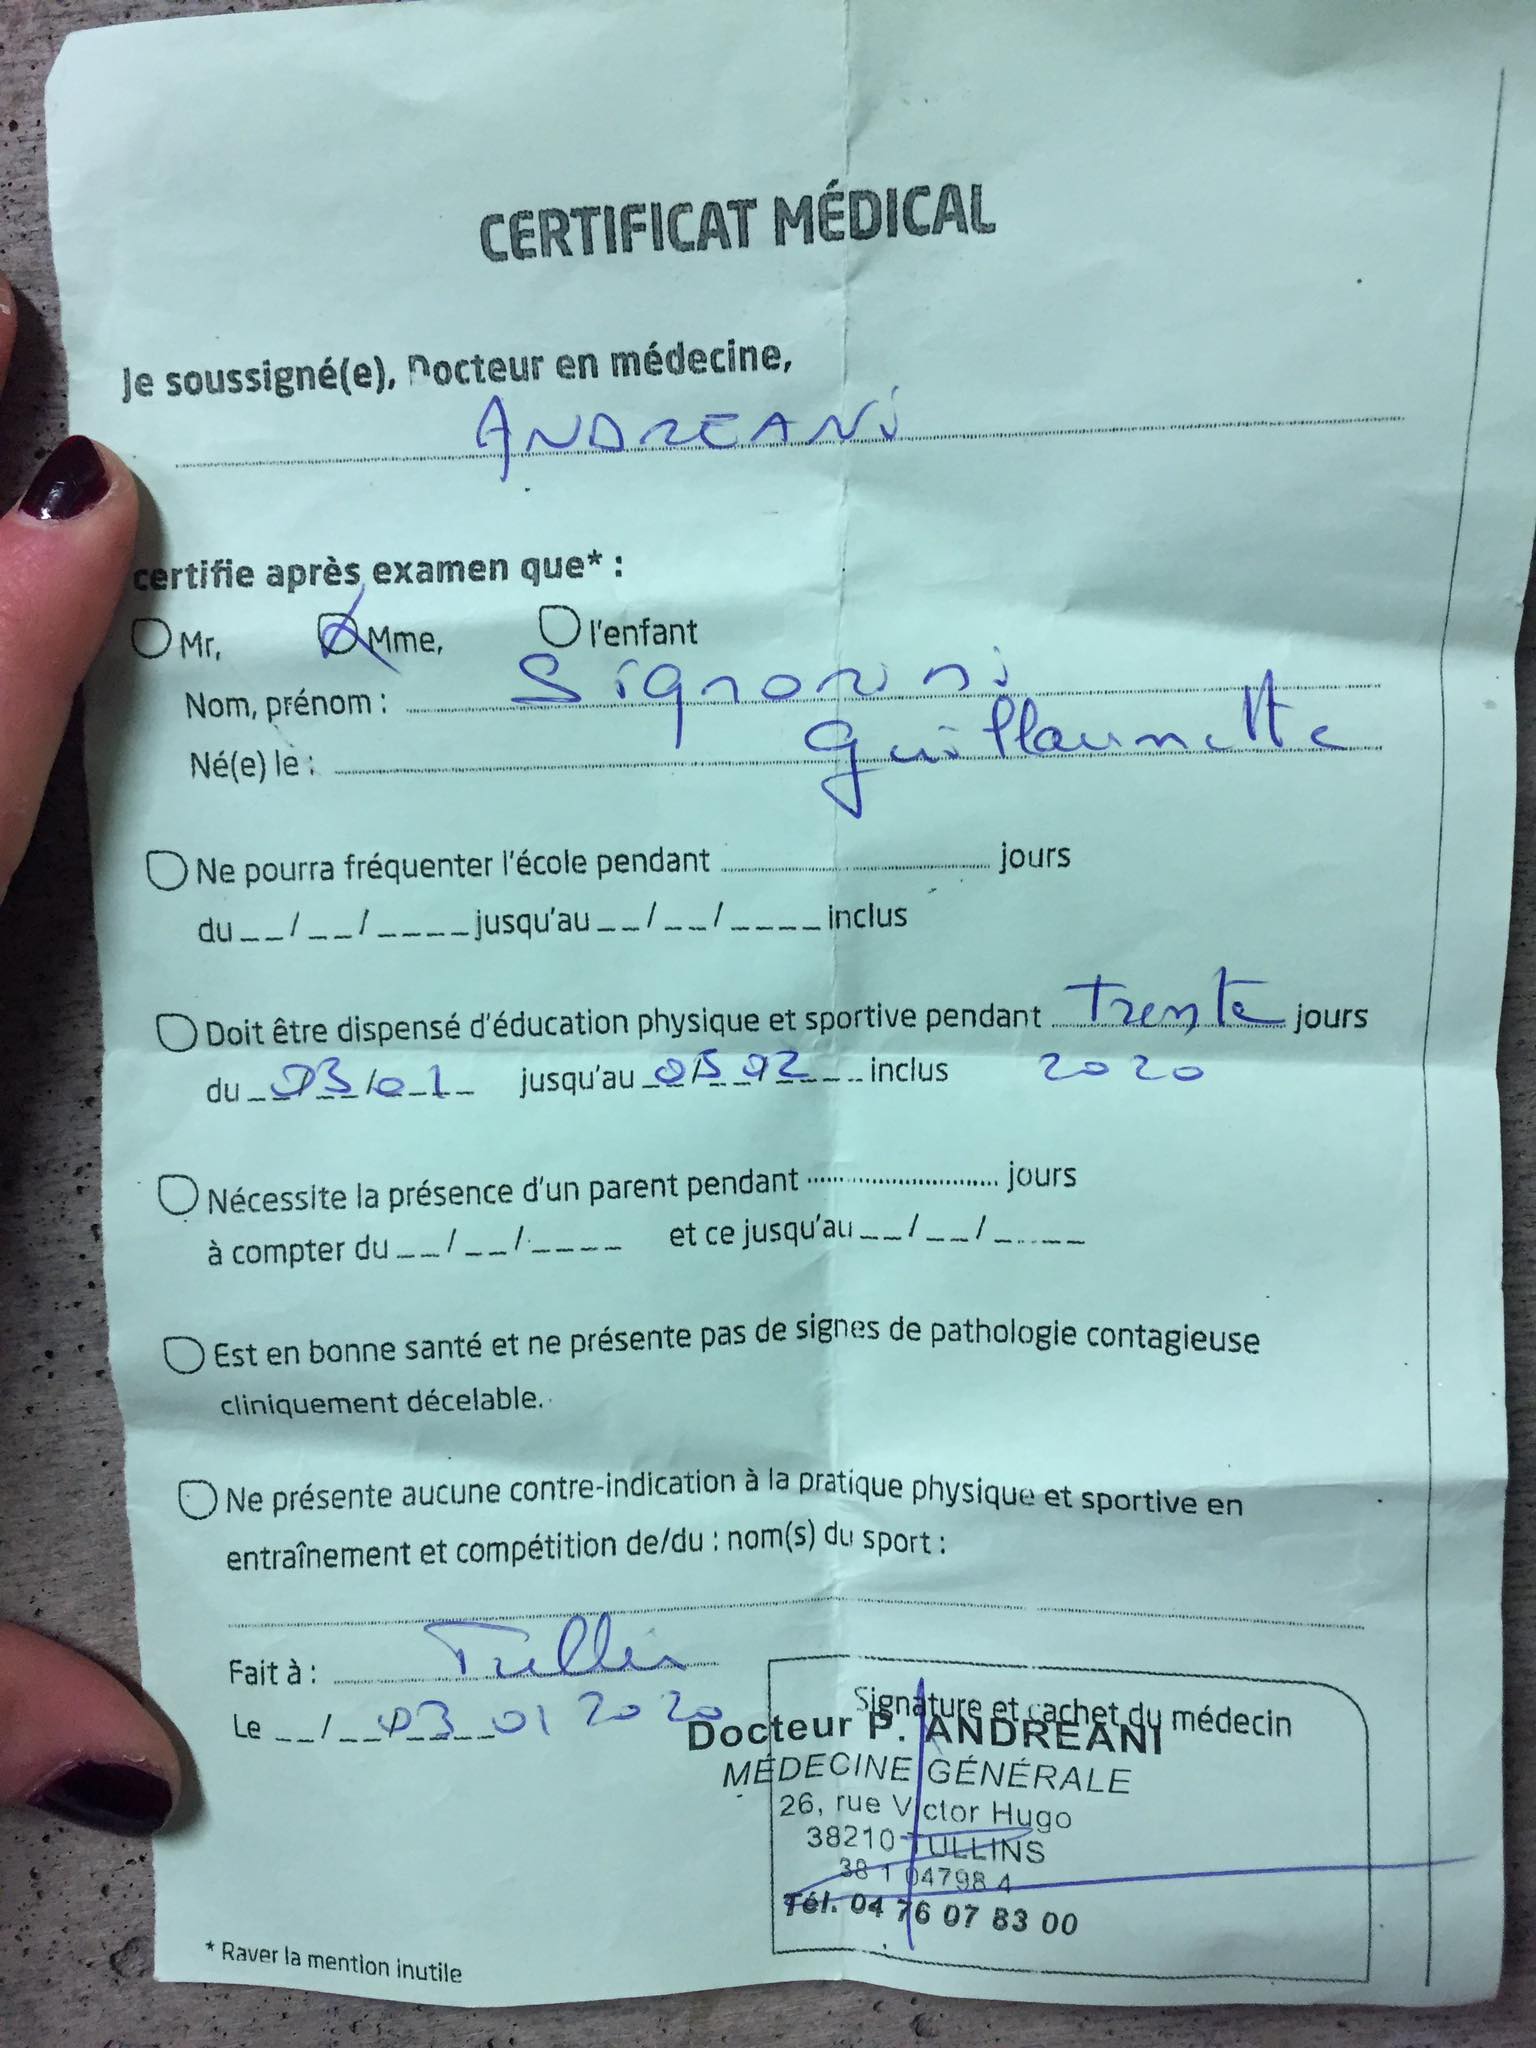 CERTIFICAT MÉDICAL
Je soussigné(e), Docteur en médecine,
ANDREANI
certifie après examen que* :
Mr, Mme, l'enfant
Nom, prénom : Signorini
Guillaumette
Né(e) le :
Ne pourra fréquenter l'école pendant jours
du __/__/____ jusqu'au __/__/____ inclus
Doit être dispensé d'éducation physique et sportive pendant Trente jours
du 03/01 jusqu'au 03 02 inclus 2020
Nécessite la présence d'un parent pendant jours
à compter du __/__/____ et ce jusqu'au __/__/____
Est en bonne santé et ne présente pas de signes de pathologie contagieuse
cliniquement décelable.
Ne présente aucune contre-indication à la pratique physique et sportive en
entraînement et compétition de/du : nom(s) du sport :
Fait à : Tullin
Le __/__ 03 01 2020
Signature et cachet du médecin
Docteur P. ANDREANI
MÉDECINE GÉNÉRALE
26, rue Victor Hugo
38210 TULLINS
38 1 04798 4
Tél. 04 76 07 83 00
* Raver la mention inutile